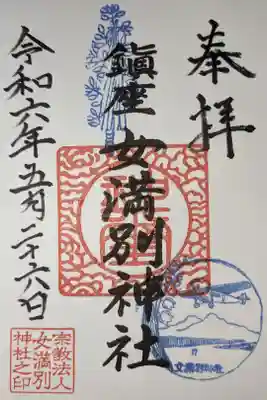 奉拝
鎮座 女満別神社
令和六年五月二十六日
宗教法人
女満別
神社之印